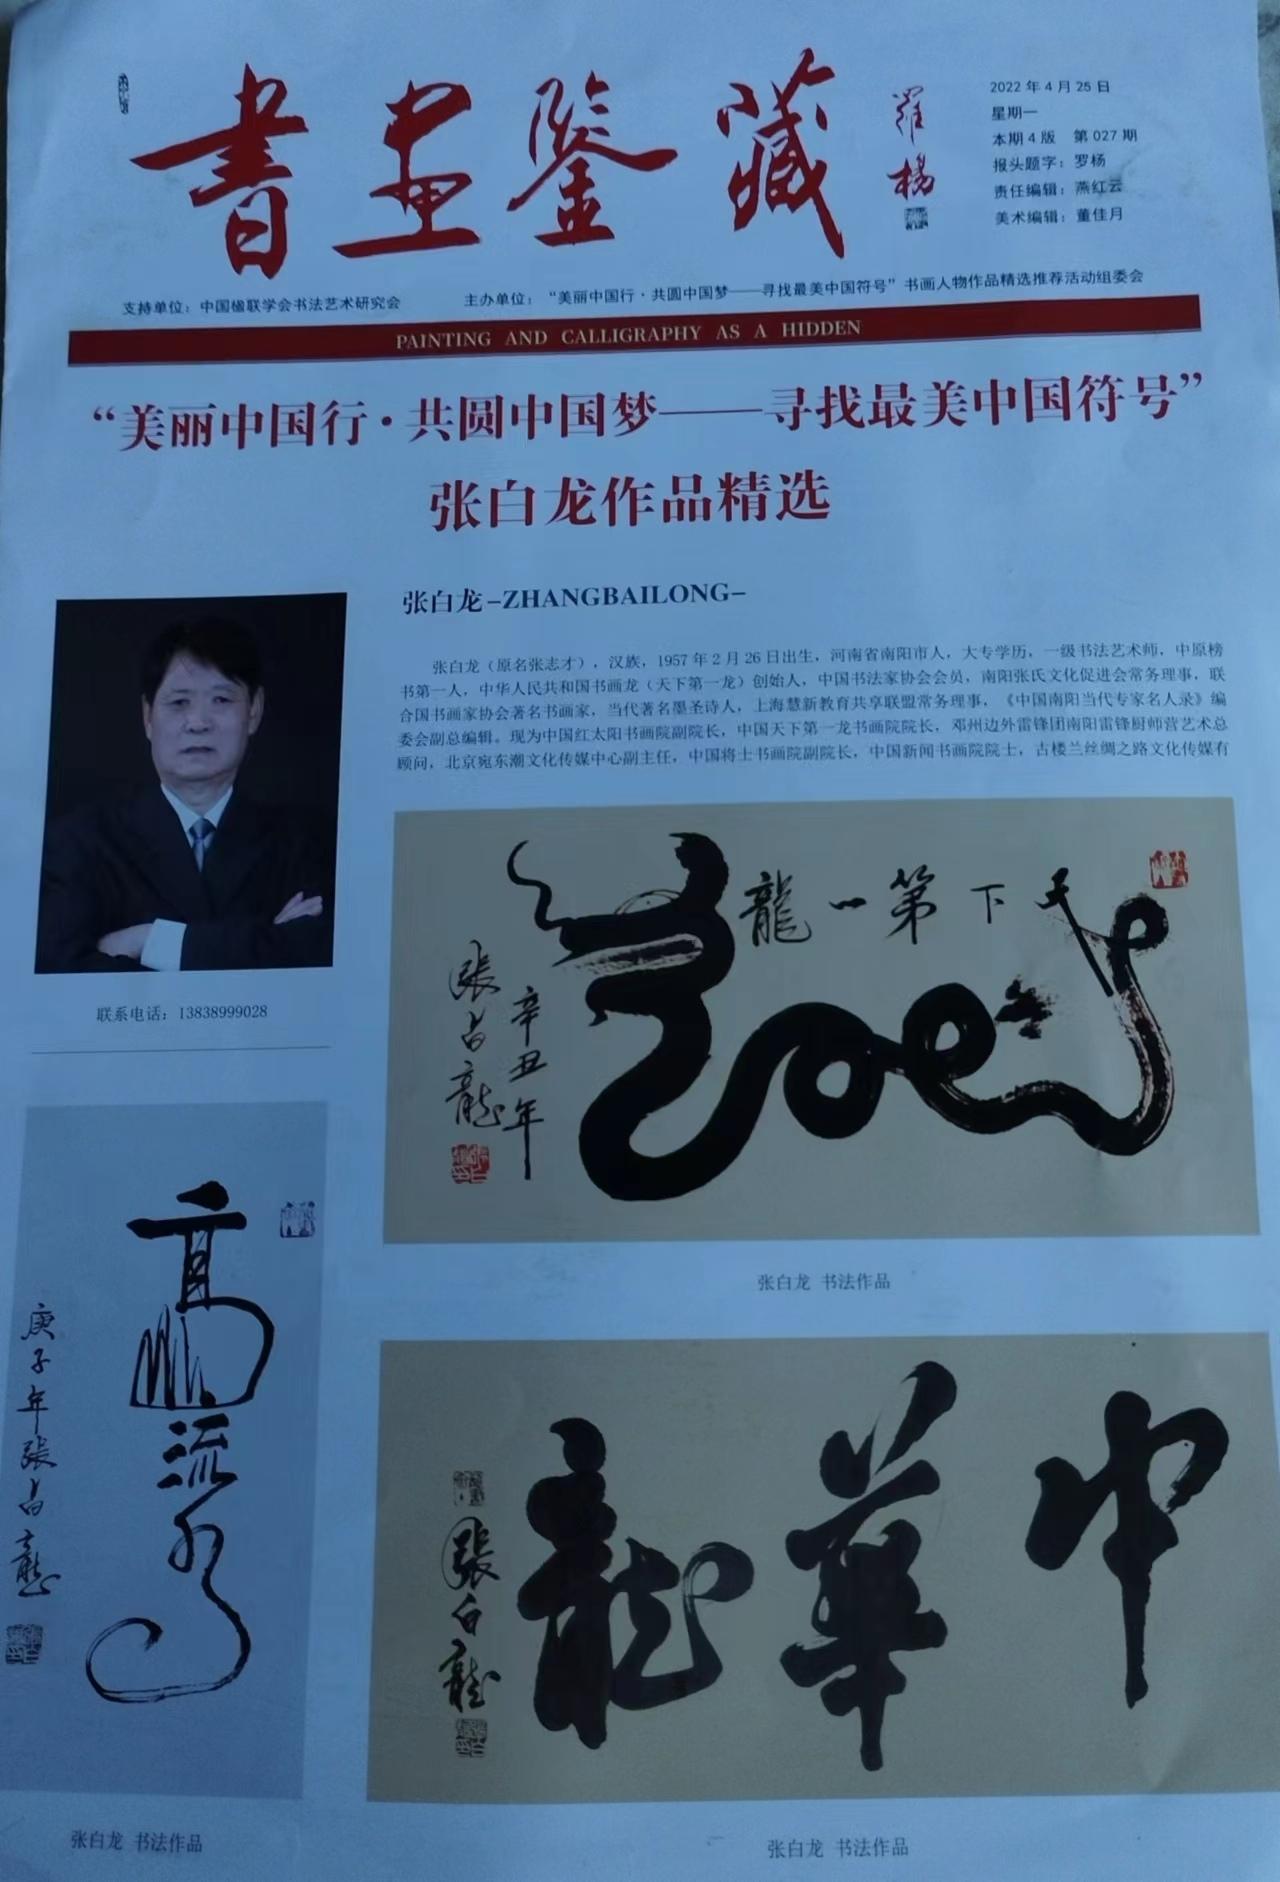 書畫鑒藏
羅楊
2022年4月25日
星期一
本期4版 第027期
报头题字：罗杨
责任编辑：燕红云
美术编辑：董佳月
支持单位：中国楹联学会书法艺术研究会
主办单位：“美丽中国行·共圆中国梦——寻找最美中国符号”书画人物作品精选推荐活动组委会
PAINTING AND CALLIGRAPHY AS A HIDDEN
“美丽中国行·共圆中国梦——寻找最美中国符号”
张白龙作品精选
张白龙-ZHANGBAILONG-
张白龙（原名张志才），汉族，1957年2月26日出生，河南省南阳市人，大专学历，一级书法艺术师，中原榜
书第一人，中华人民共和国书画龙（天下第一龙）创始人，中国书法家协会会员，南阳张氏文化促进会常务理事，联
合国书画家协会著名书画家，当代著名墨圣诗人，上海慧新教育共享联盟常务理事，《中国南阳当代专家名人录》编
委会副总编辑。现为中国红太阳书画院副院长，中国天下第一龙书画院院长，邓州边外雷锋团南阳雷锋厨师营艺术总
顾问，北京宛东潮文化传媒中心副主任，中国将士书画院副院长，中国新闻书画院院士，古楼兰丝绸之路文化传媒有
联系电话：13838999028
天下第一龍
辛丑年
張白龍
张白龙 书法作品
高山流水
庚子年張白龍
张白龙 书法作品
中華龍
張白龍
张白龙 书法作品